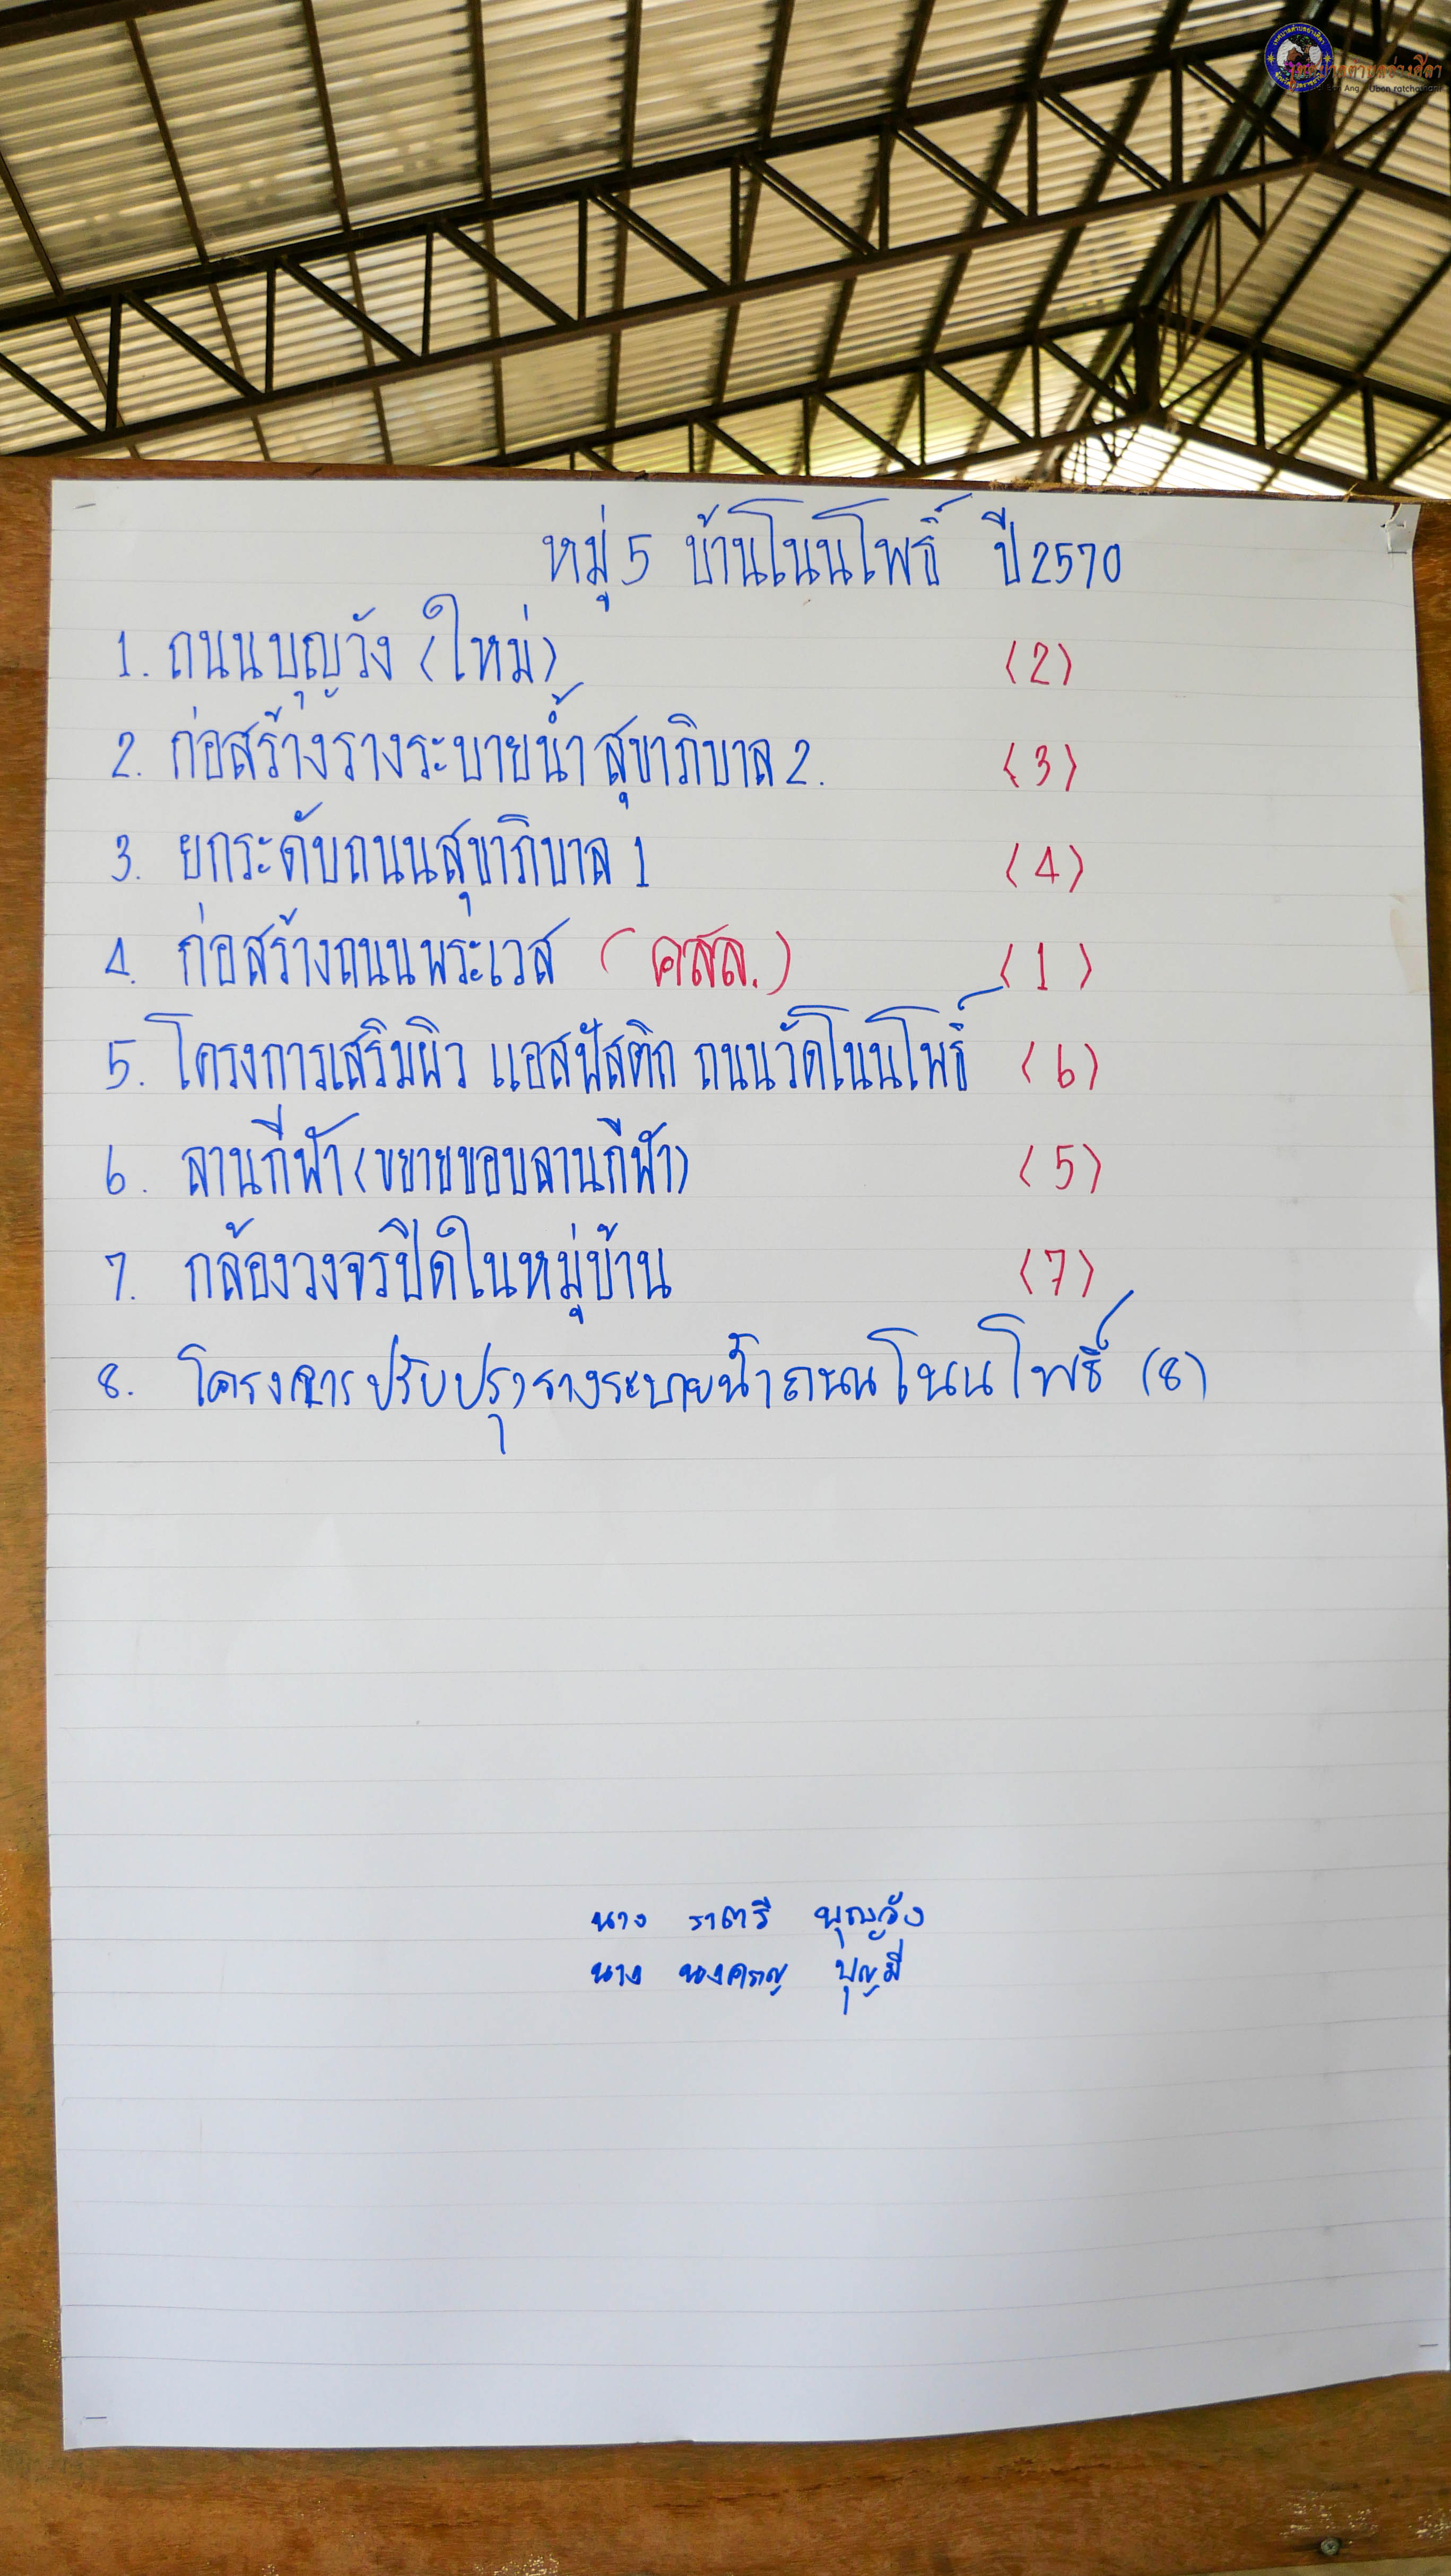 เทศบาลตำบลอ่างศิลา
หมู่ 5 บ้านโนนโพธิ์ ปี 2570
1. ถนนบุญวัง (ใหม่) (2)
2. ก่อสร้างรางระบายน้ำ สุขาภิบาล 2. (3)
3. ยกระดับถนนสุขาภิบาล 1 (4)
4. ก่อสร้างถนนพระเวส (คสล.) (1)
5. โครงการเสริมผิว แอสฟัสติก ถนนวัดโนนโพธิ์ (6)
6. ลานกีฬา (ขยายขอบลานกีฬา) (5)
7. กล้องวงจรปิดในหมู่บ้าน (7)
8. โครงการปรับปรุงรางระบายน้ำถนนโนนโพธิ์ (8)
นาง ราตรี บุญวัง
นาง นงคราญ บุญมี